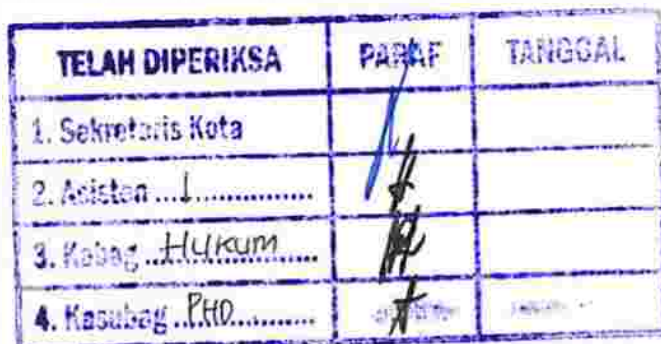 TELAH DIPERIKSA PARAF TANGGAL
1. Sekretaris Kota
2. Asisten ...I...............
3. Kabag ..Hukum......
4. Kasubag ..PHD............